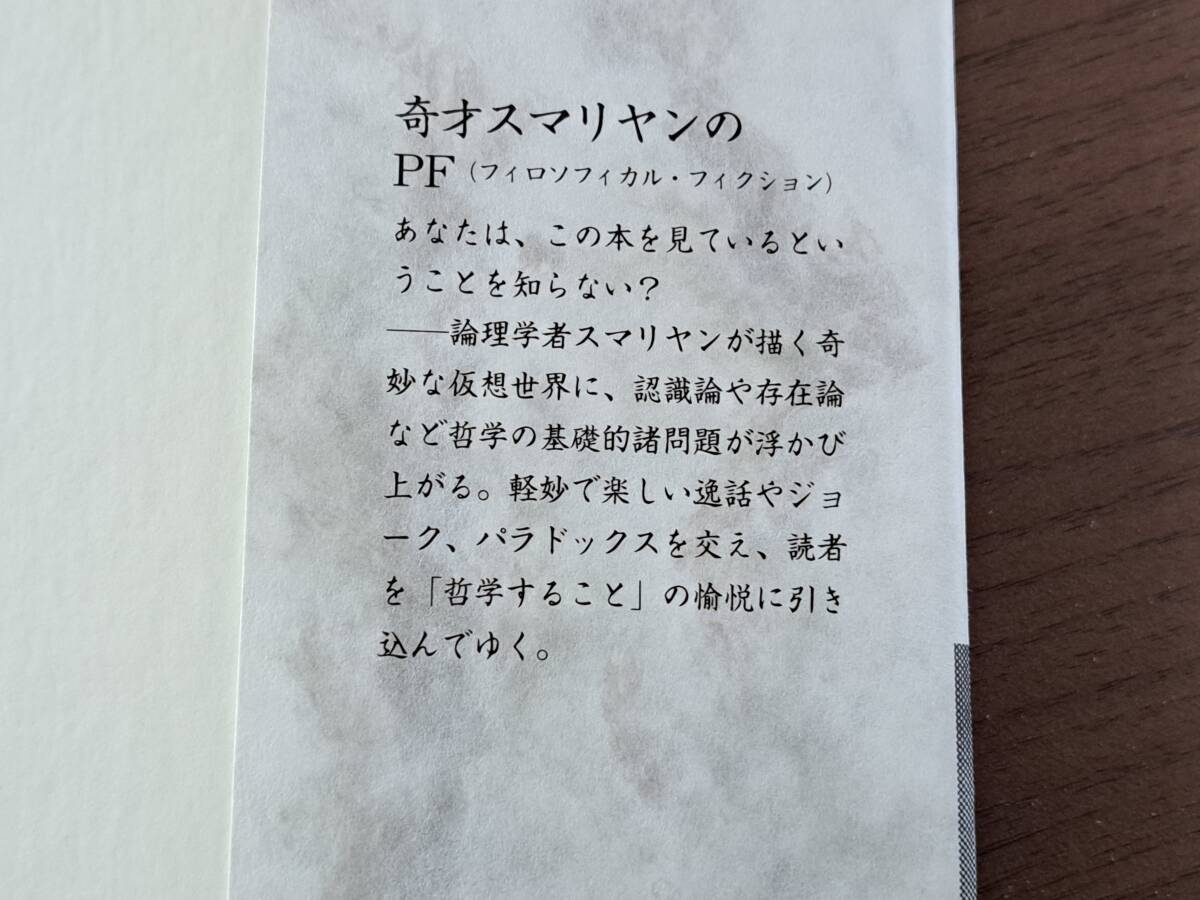 奇才スマリヤンの
PF（フィロソフィカル・フィクション）
あなたは、この本を見ているとい
うことを知らない？
――論理学者スマリヤンが描く奇
妙な仮想世界に、認識論や存在論
など哲学の基礎的諸問題が浮かび
上がる。軽妙で楽しい逸話やジョ
ーク、パラドックスを交え、読者
を「哲学すること」の愉悦に引き
込んでゆく。